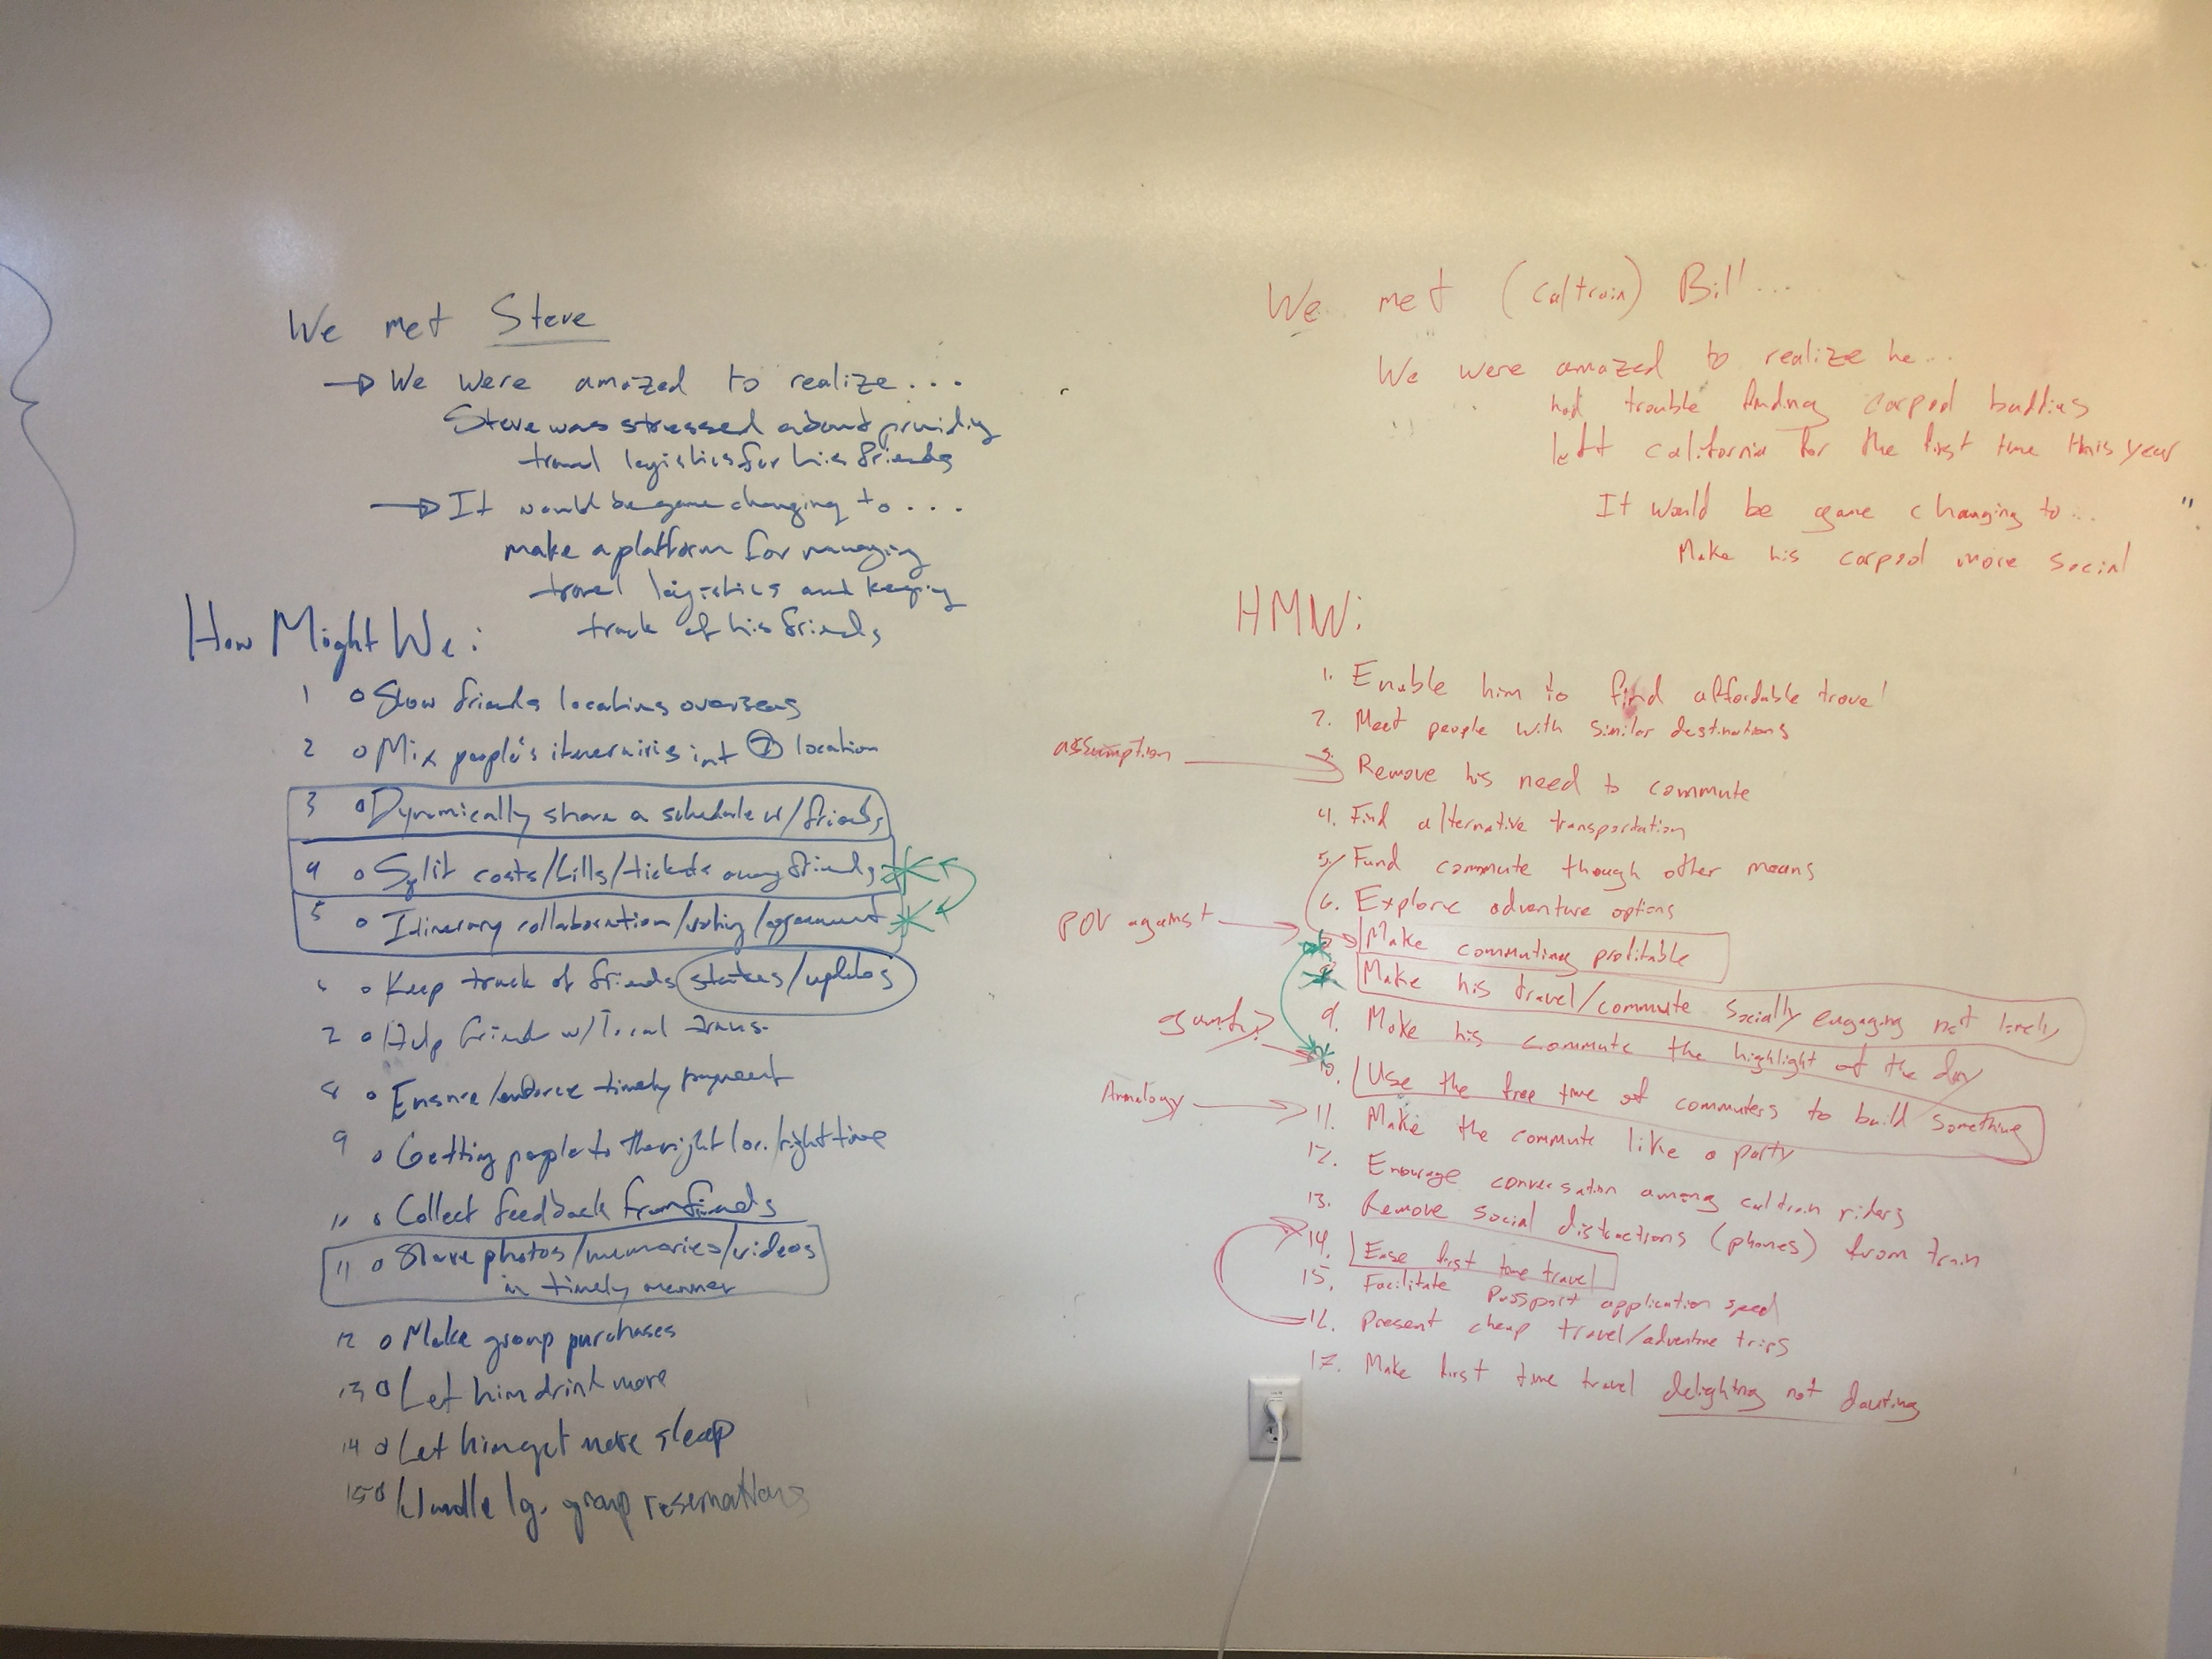 We met Steve
We were amazed to realize...
Steve was stressed about providing
travel logistics for his friends
It would be game changing to...
make a platform for managing
travel logistics and keeping
track of his friends
How Might We:
1 Show friends locations overseas
2 Mix people's iteneraries int 1 location
3 Dynamically share a schedule w/ friends
4 Split costs/bills/tickets among friends
5 Itinerary collaboration/voting/agreement
6 Keep track of friends
7 Help friend w/ local trans.
8 Ensure/enforce timely payment
9 Getting people to the right loc./right time
10 Collect feedback from friends
11 Share photos/memories/videos
in timely manner
12 Make group purchases
13 Let him drink more
14 Let him get more sleep
15 Handle lg. group reservations
We met (caltrain) Bill...
We were amazed to realize he...
had trouble finding carpool buddies
left california for the first time this year
It would be game changing to...
Make his carpool more social
HMW:
1. Enable him to find affordable travel
2. Meet people with similar destinations
assumption
3. Remove his need to commute
4. Find alternative transportation
5. Fund commute though other means
6. Explore adventure options
POV against
Make commuting profitable
8 Make his travel/commute socially engaging not lonely
9. Make his commute the highlight of the day
10. Use the free time of commuters to build something
Analogy
11. Make the commute like a party
12. Enourage conversation among caltrain riders
13. Remove social distractions (phones) from train
14. Ease first time travel
15. Facilitate Passport application speed
16. Present cheap travel/adventure trips
17. Make first time travel delighting not dauting